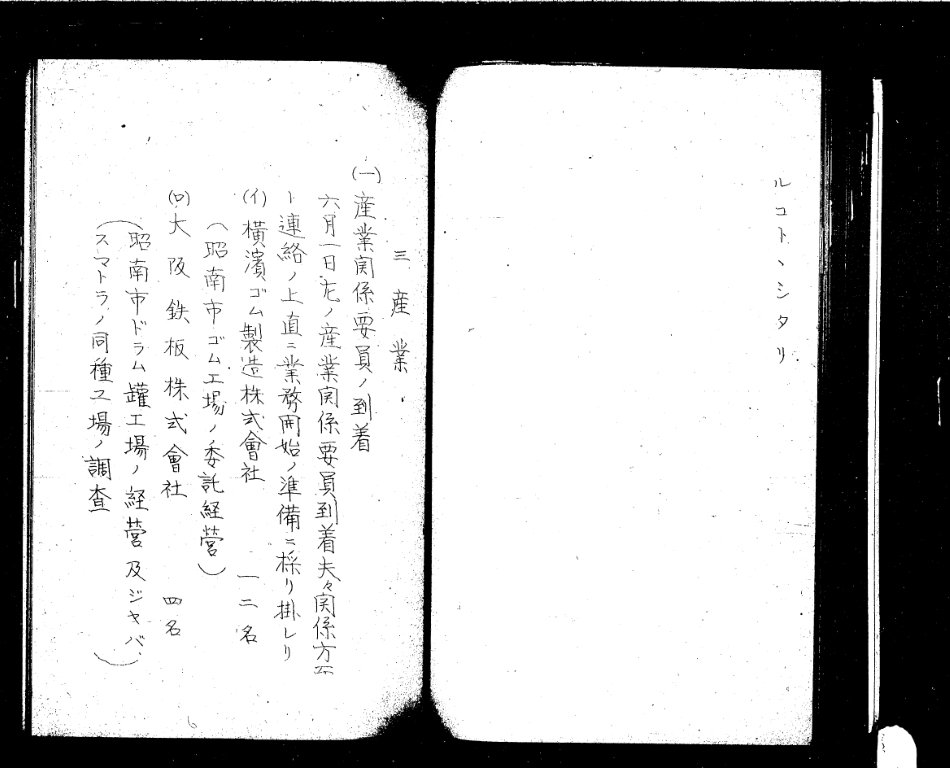 ルコトヽシタリ
三 産業
(一)産業関係要員ノ到着
六月一日左ノ産業関係要員到着夫々関係方面
ト連絡ノ上直ニ業務開始ノ準備ニ採リ掛レリ
(イ)横濱ゴム製造株式會社 一二名
(昭南市ゴム工場ノ委託経営)
(ロ)大阪鉄板株式會社 四名
(昭南市ドラム罐工場ノ経営及ジャバ、
スマトラノ同種工場ノ調査)
6